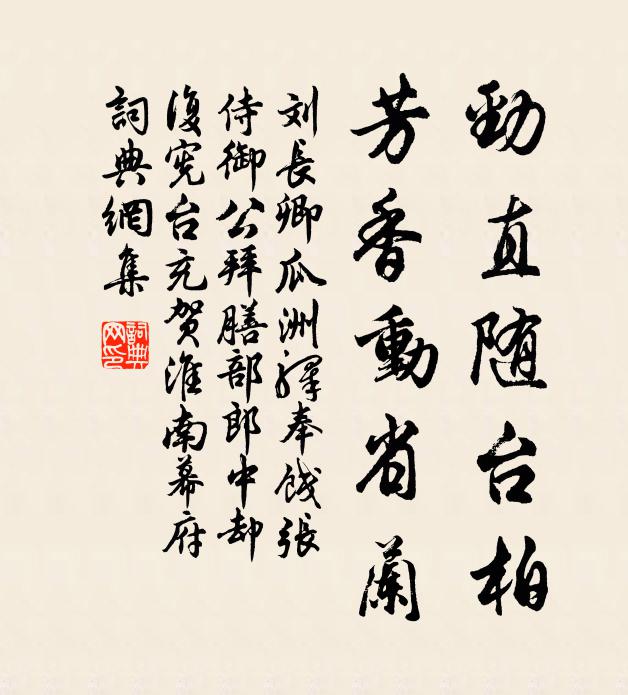 勁直随台柏
芳香動省蘭
刘長卿瓜洲驛奉餞張
侍御公拜膳部郎中却
復宪台充贺淮南幕府
詞典網集
詞典网印